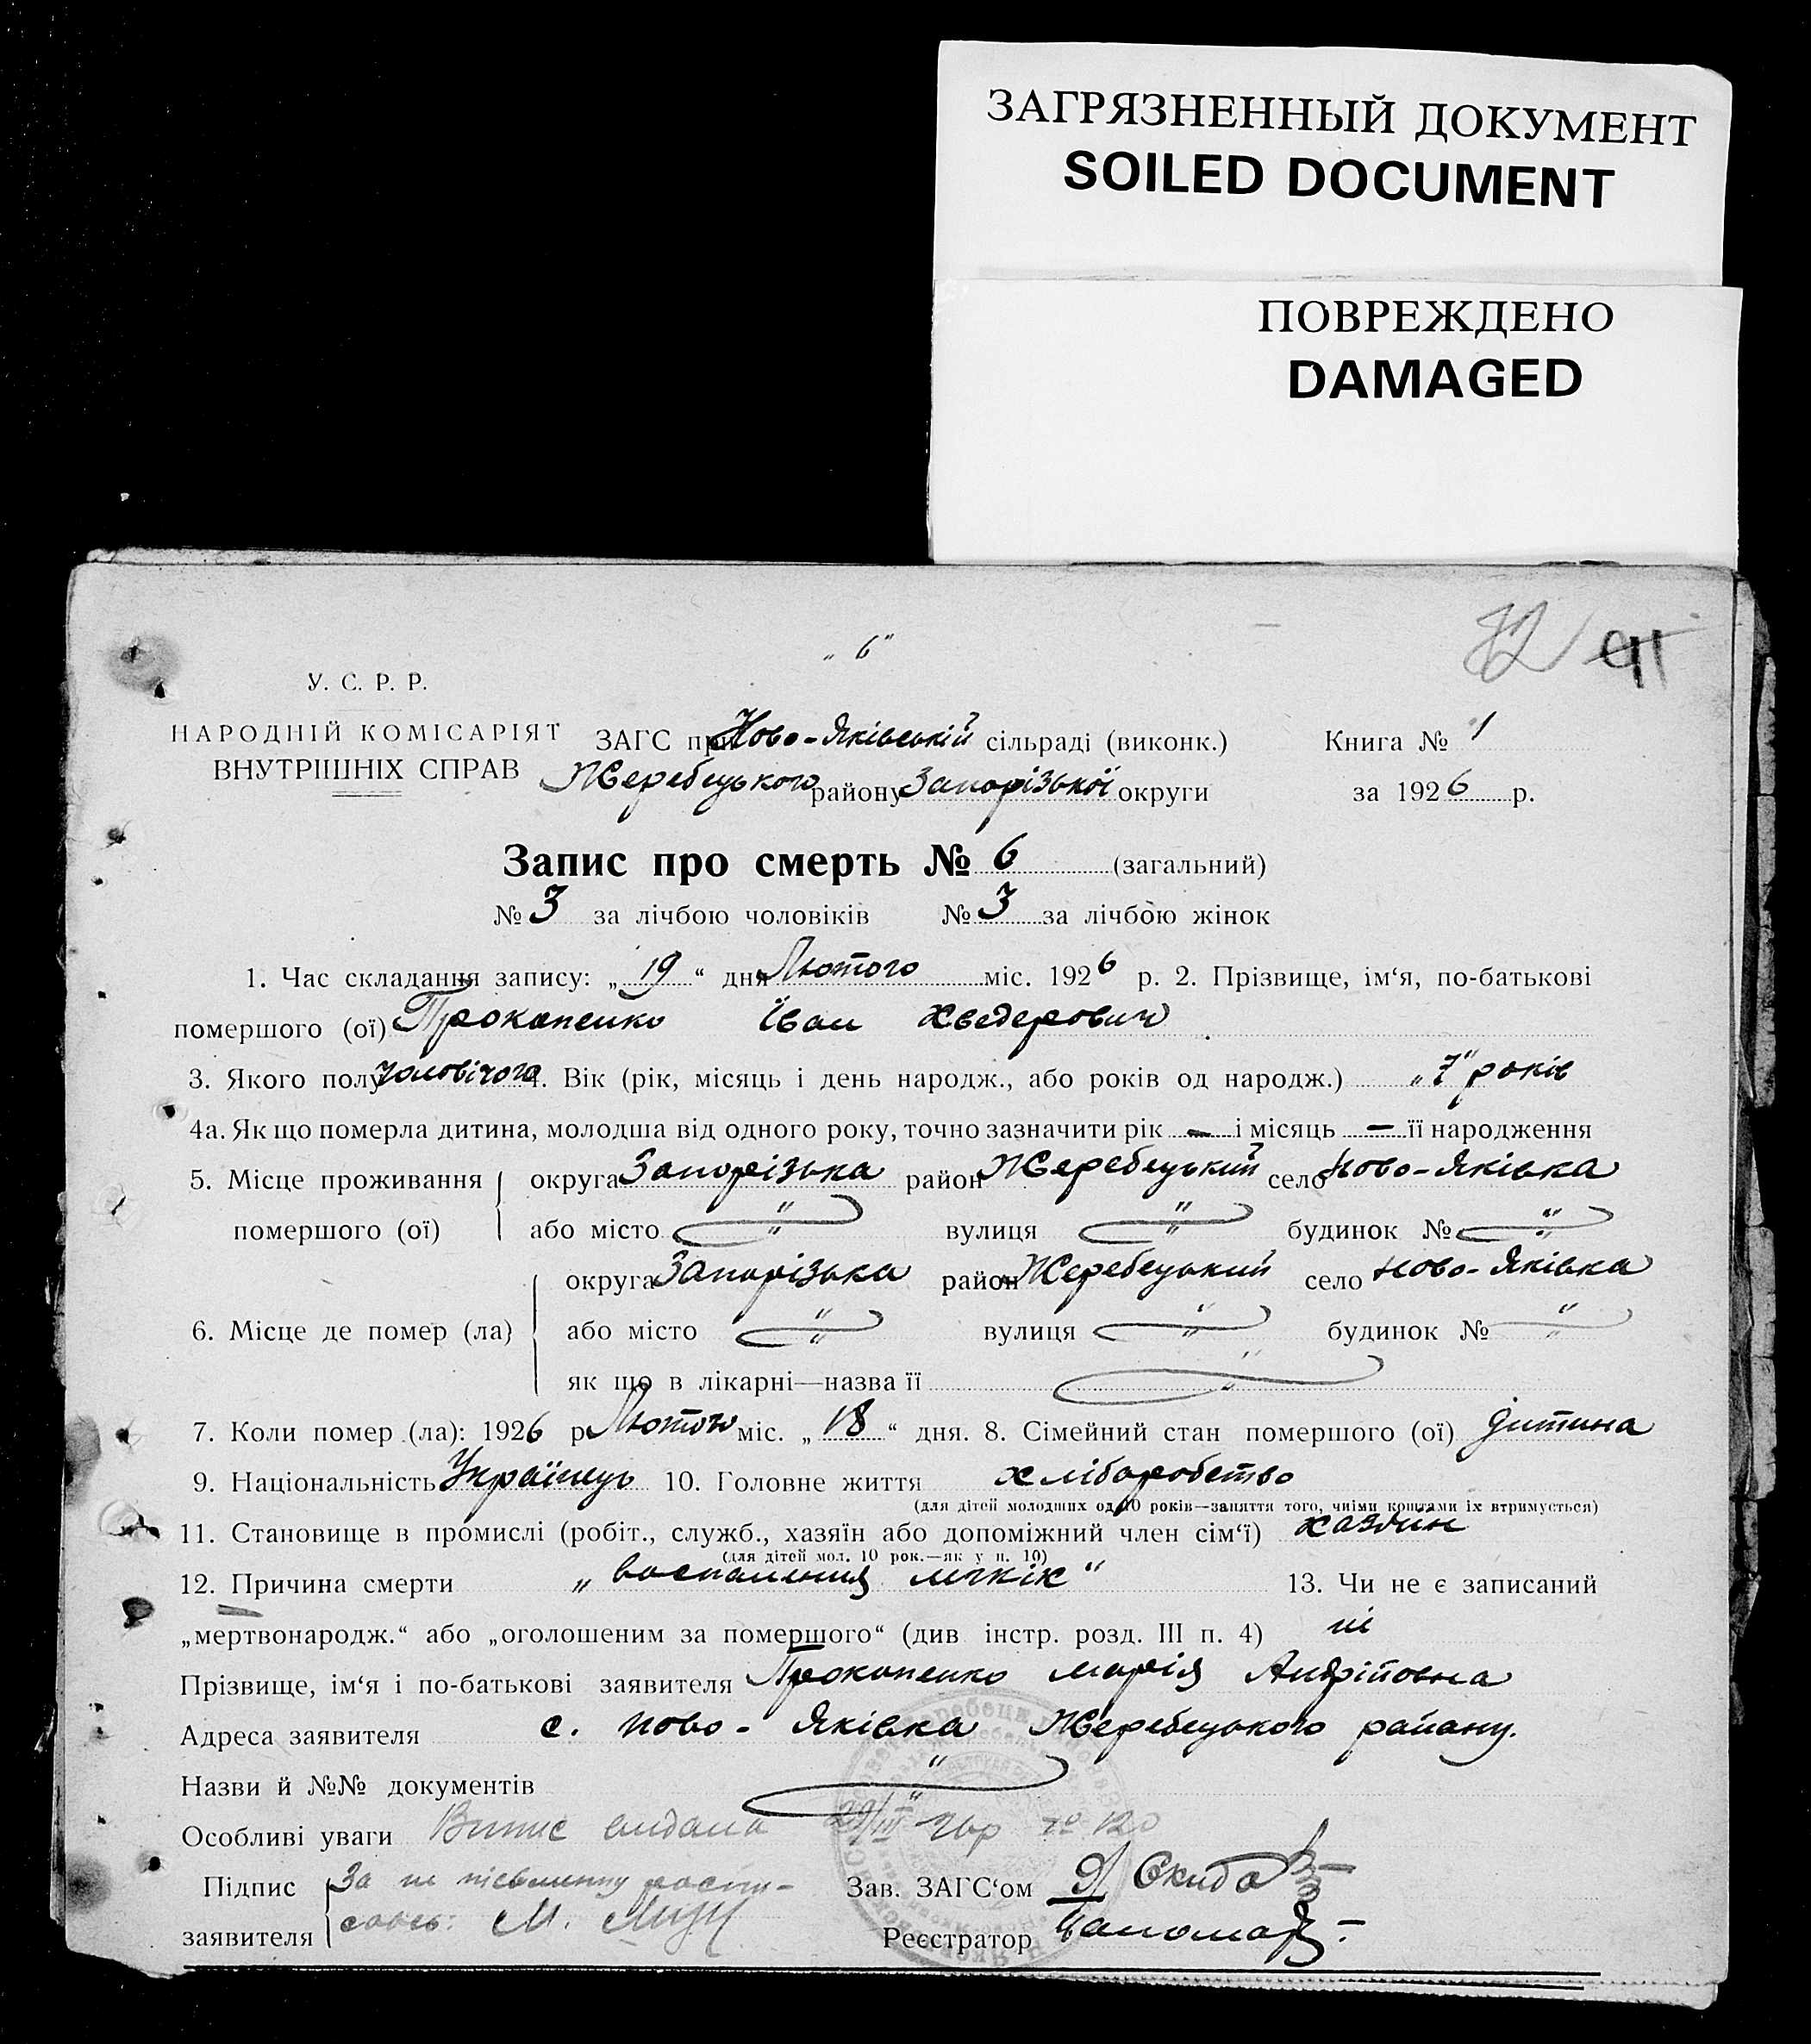 ЗАГРЯЗНЕННЫЙ ДОКУМЕНТ
SOILED DOCUMENT
ПОВРЕЖДЕНО
DAMAGED
72 91
„6"
У. С. Р. Р.
НАРОДНІЙ КОМІСАРІЯТ
ВНУТРІШНІХ СПРАВ
ЗАГС при Ново-Яківській сільраді (виконк.) Книга № 1
Жеребецького району Запорізької округи за 1926 р.
Запис про смерть № 6 (загальний)
№ 3 за лічбою чоловіків № 3 за лічбою жінок
1. Час складання запису: „19“ дня Лютого міс. 1926 р. 2. Прізвище, ім‘я, по-батькові
помершого (ої) Прокопенко Іван Хведерович
3. Якого полу чоловічого 4. Вік (рік, місяць і день народж., або років од народж.) „7" років
4а. Як що померла дитина, молодша від одного року, точно зазначити рік — і місяць — її народження
5. Місце проживання округа Запорізька район Жеребецький село Ново-Яківка
помершого (ої) або місто " вулиця " будинок № "
округа Запорізька район Жеребецький село Ново-Яківка
6. Місце де помер (ла) або місто " вулиця " будинок № "
як що в лікарні—назва її "
7. Коли помер (ла): 1926 р. Лютого міс. „18“ дня. 8. Сімейний стан помершого (ої) дитина
9. Національність Українець 10. Головне життя хліборобство
(для дітей молодших од 10 років—заняття того, чиїми коштами їх втримується)
11. Становище в промислі (робіт., служб., хазяїн або допоміжний член сім‘ї) хазяин
(для дітей мол. 10 рок.—як у п. 10)
12. Причина смерти „воспаления лёгкіх“ 13. Чи не є записаний
„мертвонародж.“ або „оголошеним за помершого“ (див інстр. розд. III п. 4) ні
Прізвище, ім‘я і по-батькові заявителя Прокопенко Марія Андрійовна
Адреса заявителя с. Ново-Яківка Жеребецького району.
Назви й №№ документів "
Особливі уваги Випис видана
Підпис За не письменну роспи-
савсь: М.
заявителя
Зав. ЗАГС‘ом Скидо
Реєстратор